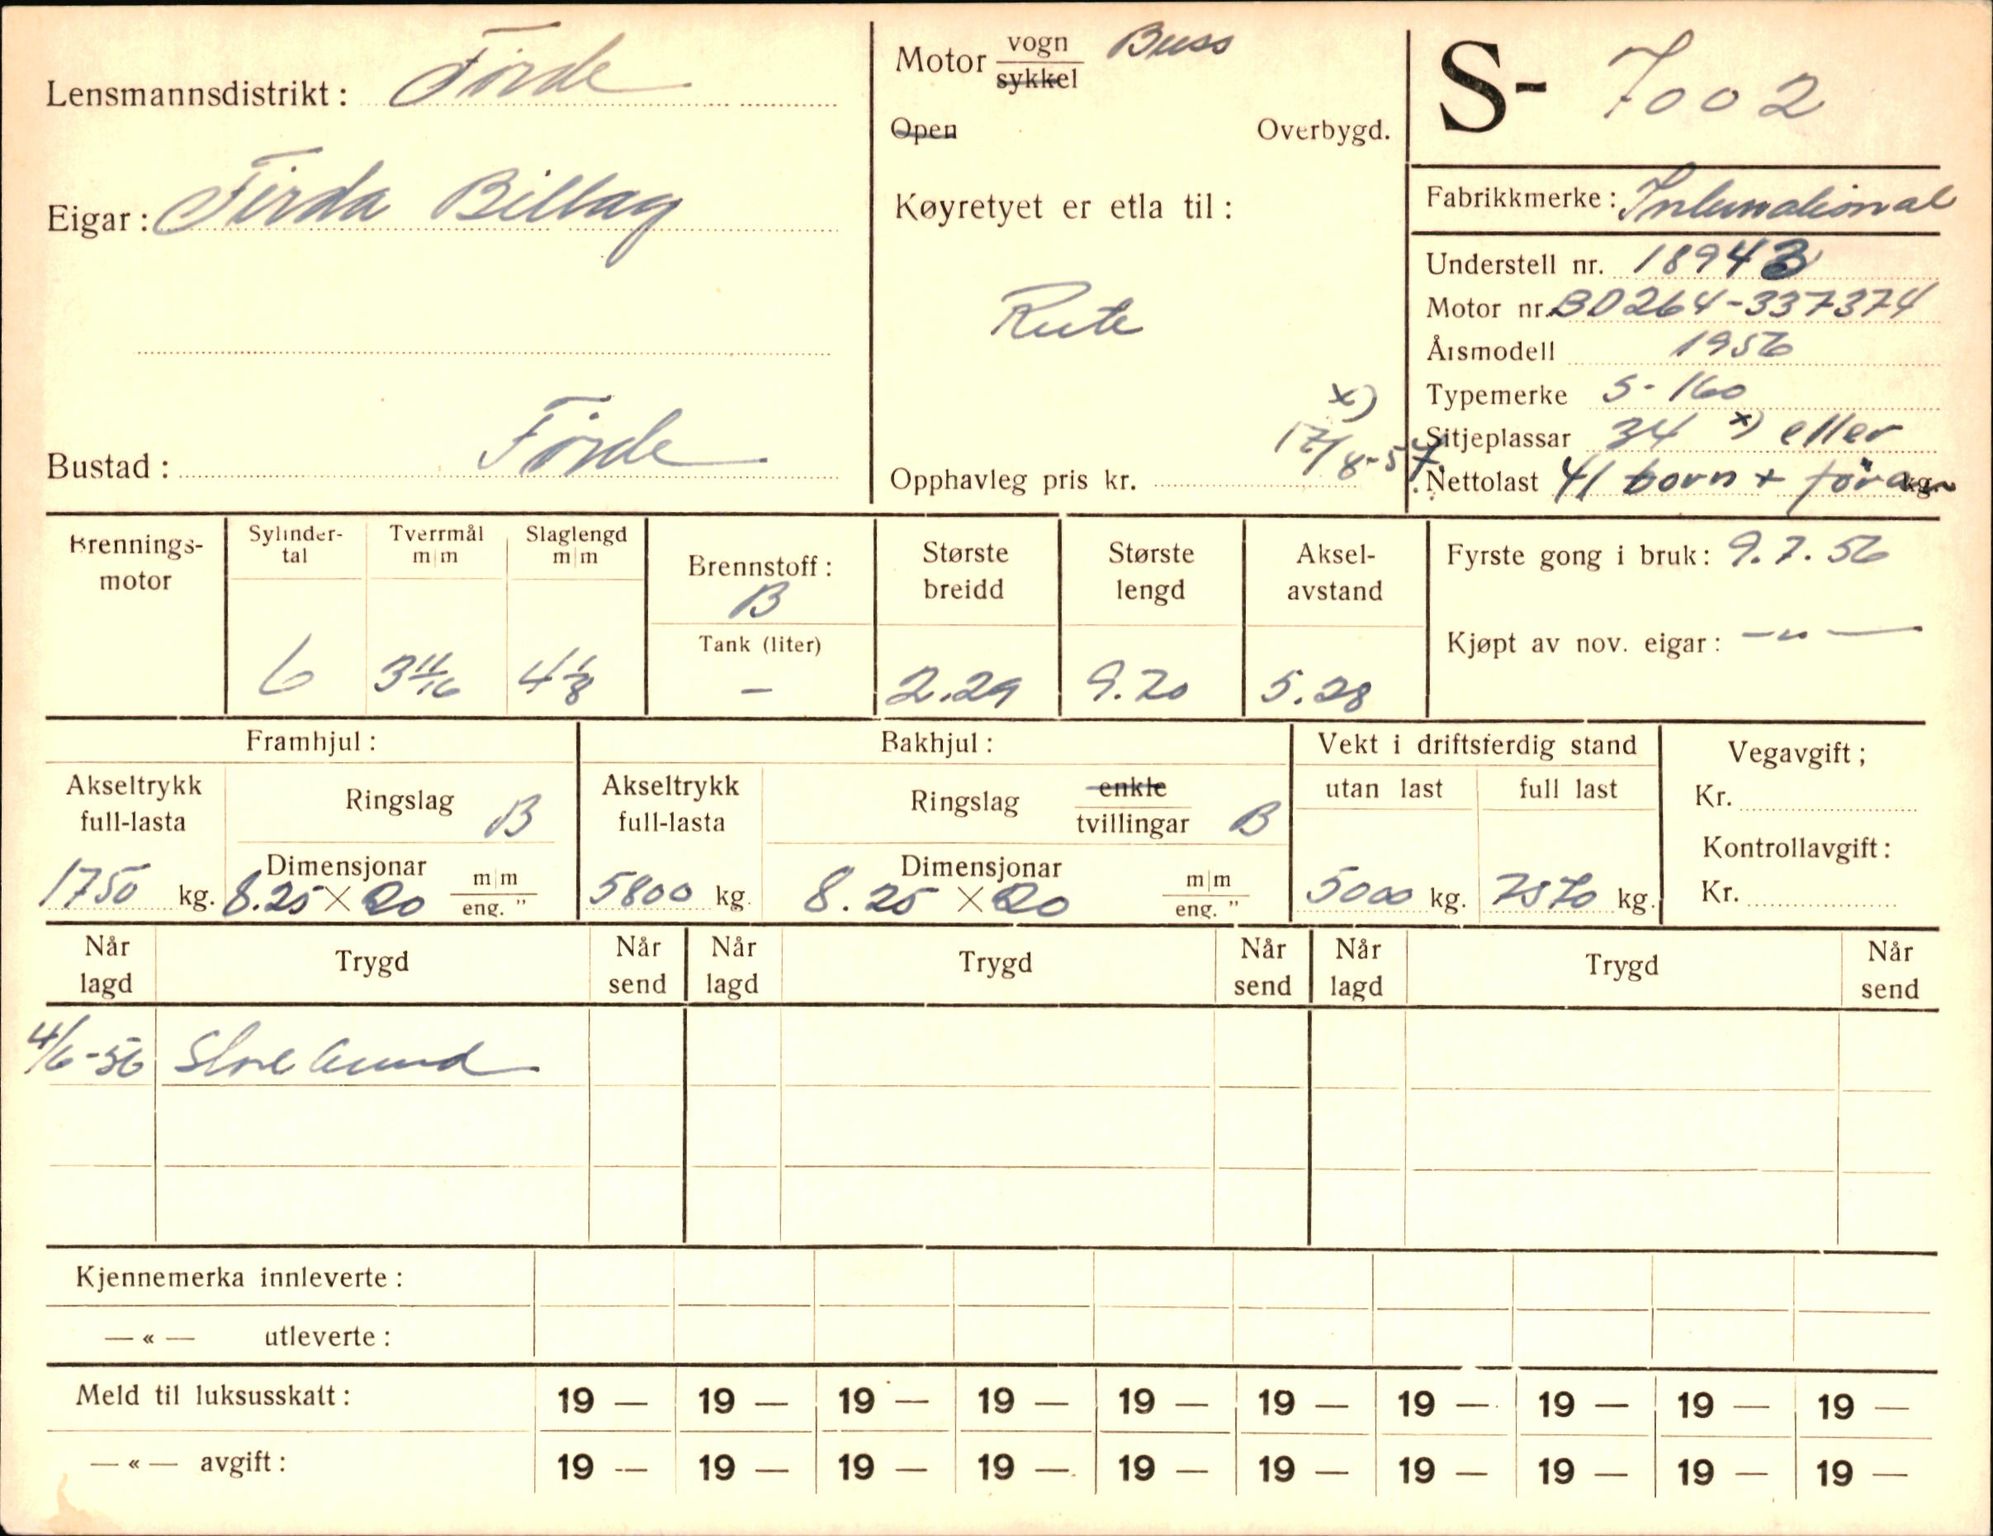 Lensmannsdistrikt: Førde
Eigar: Firda Billag
Bustad: Førde
Motor vogn Buss
sykkel
Open Overbygd.
Køyretyet er etla til:
Rute
x)
17/8-57.
Opphavleg pris kr.
S- 7002
Fabrikkmerke: International
Understell nr. 18943
Motor nr. BD264-337374
Årsmodell 1956
Typemerke S-160
Sitjeplassar 34 x) eller
Nettolast 41 born + förar kg.
Brennings-
motor
Sylinder-
tal
6
Tverrmål
m|m
3 11/16
Slaglengd
m|m
4 1/8
Brennstoff:
B
Tank (liter)
—
Største
breidd
2.29
Største
lengd
9.20
Aksel-
avstand
5.28
Fyrste gong i bruk: 9.7.56
Kjøpt av nov. eigar: —"—
Framhjul:
Akseltrykk
full-lasta
1750 kg.
Ringslag B
Dimensjonar
8.25 × 20 m|m
eng. "
Bakhjul:
Akseltrykk
full-lasta
5800 kg.
Ringslag enkle
tvillingar B
Dimensjonar
8.25 × 20 m|m
eng. "
Vekt i driftsferdig stand
utan last full last
5000 kg. 7570 kg.
Vegavgift;
Kr.
Kontrollavgift:
Kr.
Når
lagd Trygd Når
send Når
lagd Trygd Når
send Når
lagd Trygd Når
send
4/6-56 Storebrand
Kjennemerka innleverte:
— « — utleverte:
Meld til luksusskatt: 19 — 19 — 19 — 19 — 19 — 19 — 19 — 19 — 19 — 19 —
— « — avgift: 19 — 19 — 19 — 19 — 19 — 19 — 19 — 19 — 19 — 19 —